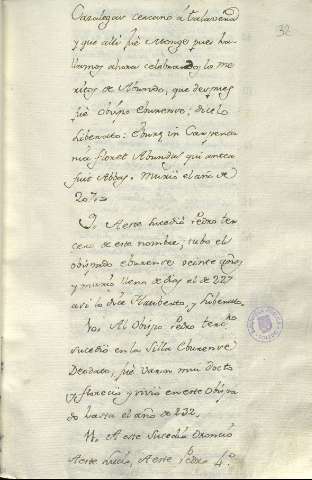 32
Cazalegas cercano á talavera
y que alli fué Monge pues ha-
llamos ahora celebrados los me
ritos de Abundo, que despues
fué obispo Eburense: dicelo
Liberato: Ebura in Carpenta
nia floret Abundus qui antea
fuit Abbas. Murió el año de
207.
9. A este sucedió Pedro ter
cero de este nombre; tubo el
obispado eburense veinte años
y murió lleno de dias el de 227
asi lo dice Haliberto, y Liberato.
10. Al Obispo Pedro terc.ro
sucedió en la Silla Eburense
Deodato, fué varon mui docto
y florecio y vivió en este Obispa
do hasta el año de 232.
11. A este sucedió Oroncio
A este Lucio, A este Pedro 4.º